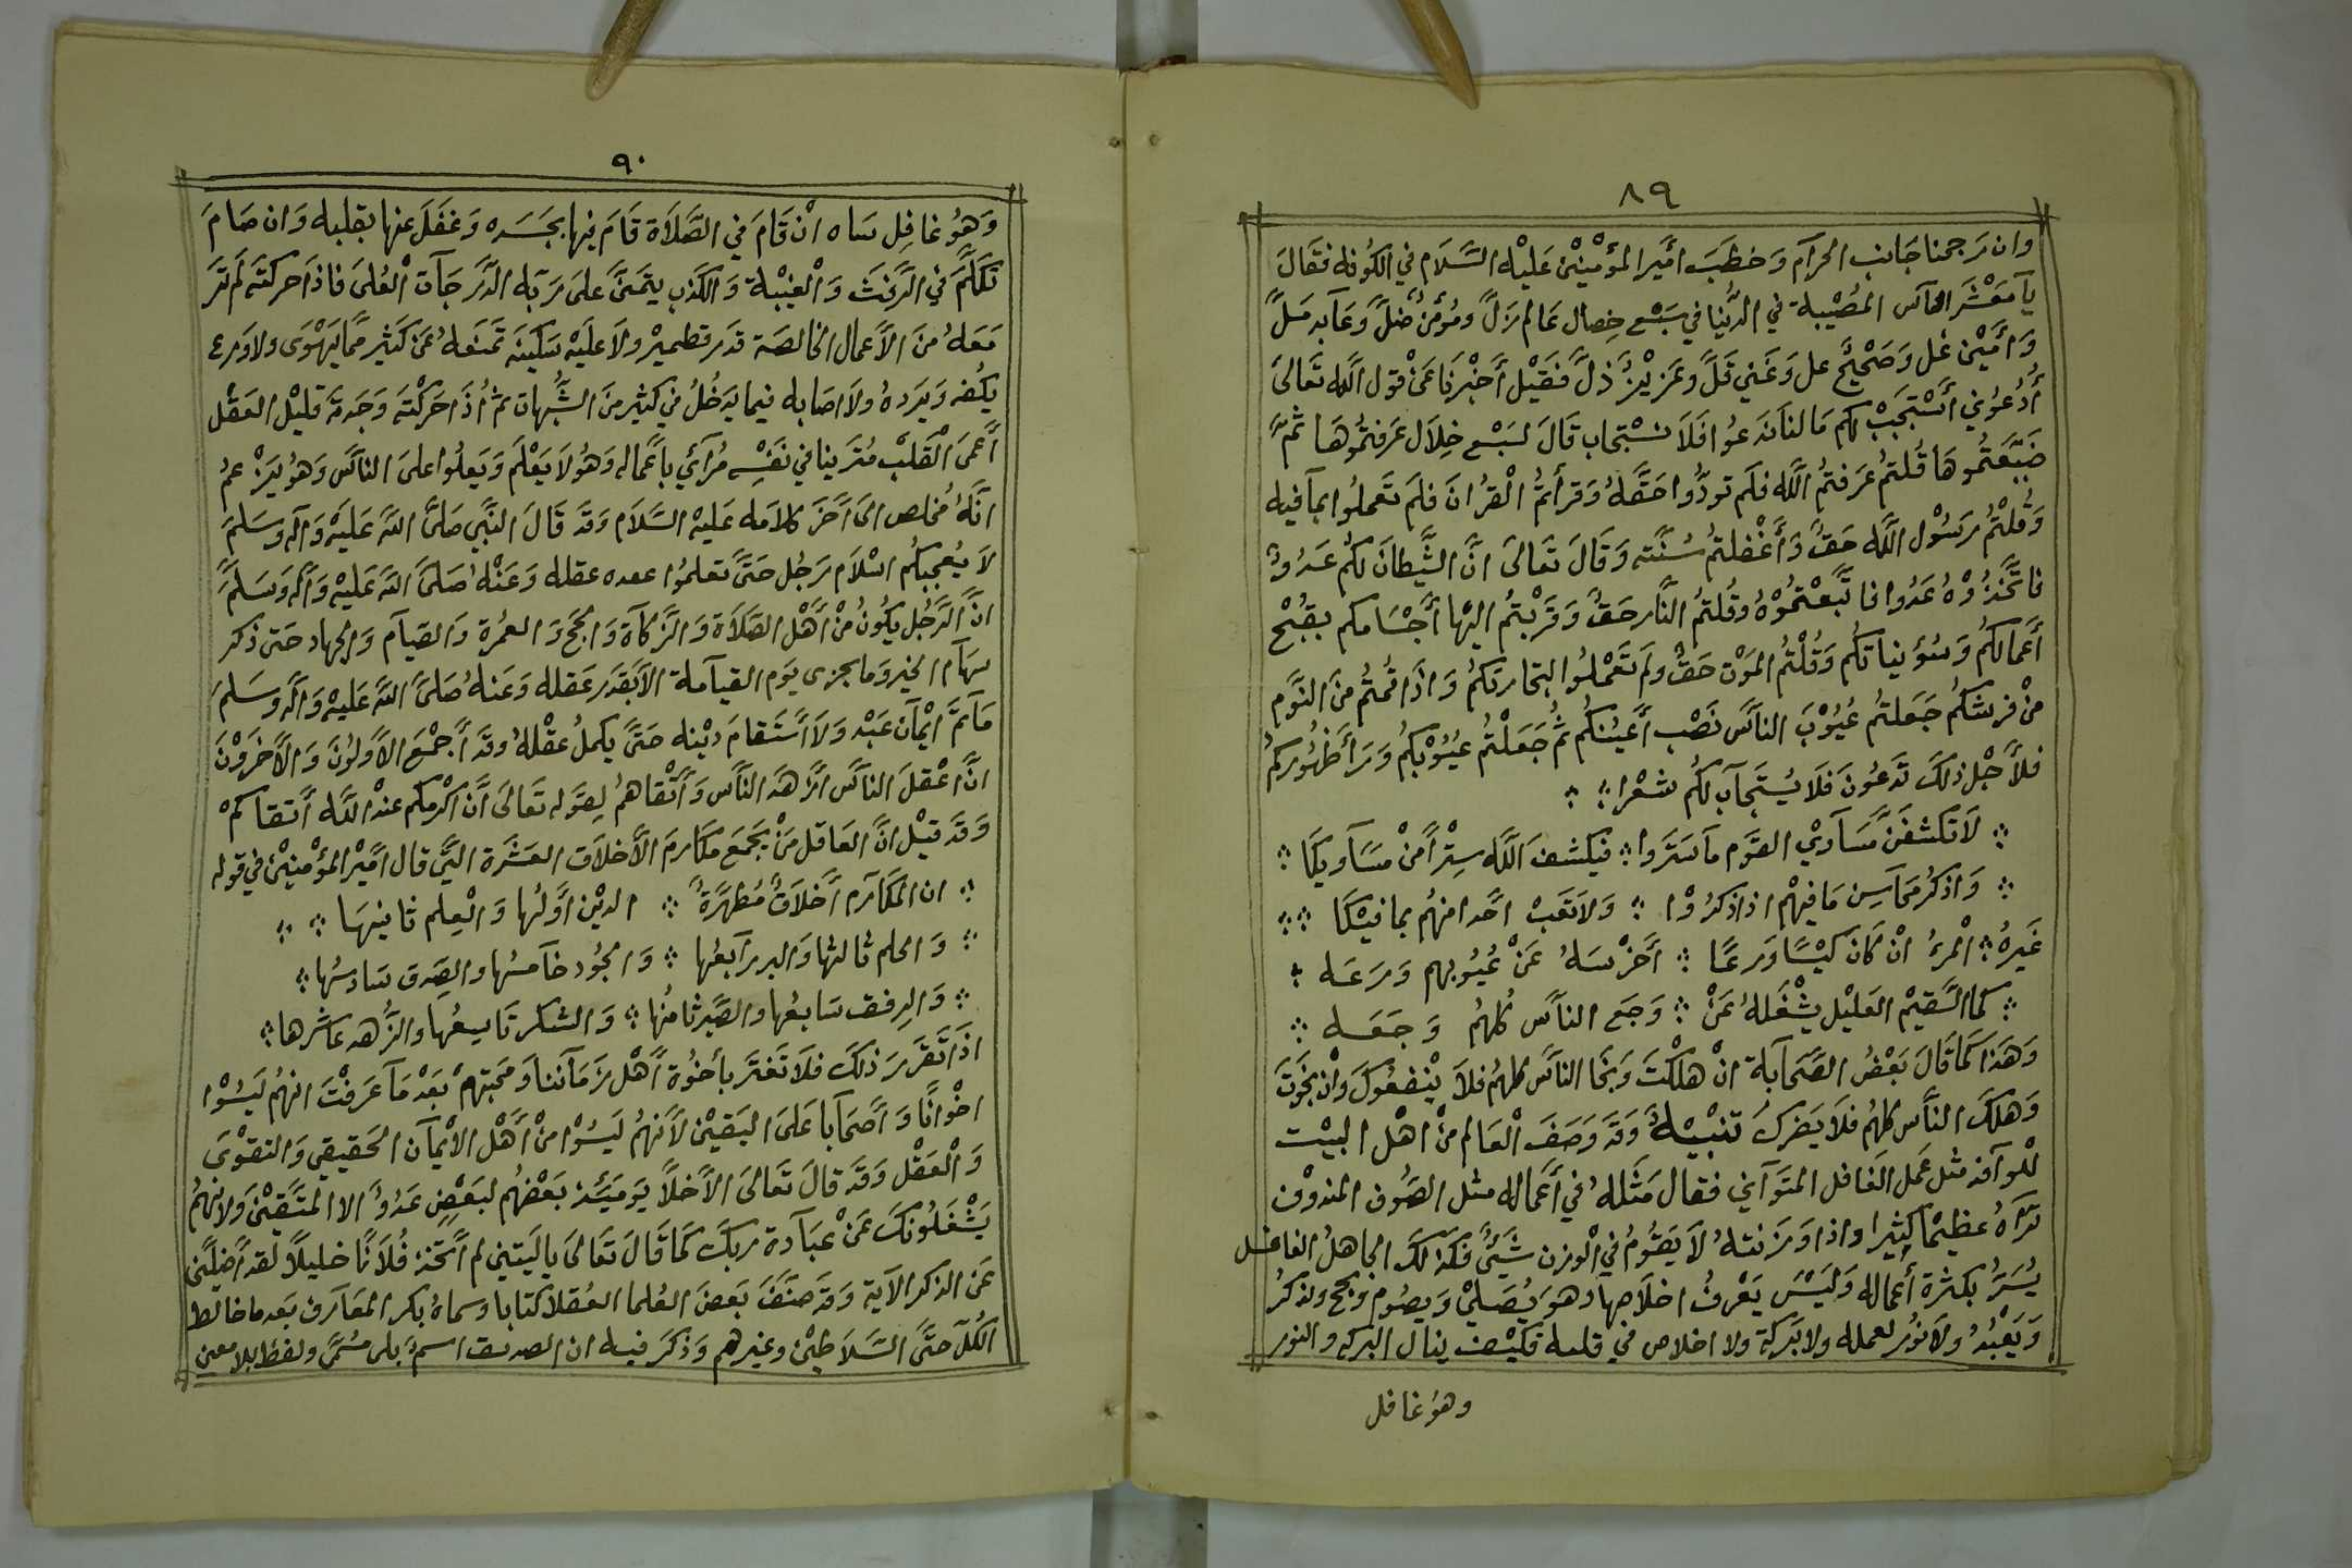 ٨٩
وان رجحنا جانب الحرام وخطب أمير المؤمنين عليه السلام في الكوفه فقال
يا معشر الناس المصيبة في الدنيا في سبع خصال عالم زل ومؤمن ضل وعابد مل
وأمين غل وصحيح عل وغني قل وعزيز ذل فقيل أخبرنا عن قول الله تعالى
أدعوني أستجب لكم مالنا ندعوا فلا نستجاب قال لسبع خلال عرفتموها ثم
ضيعتموها قلتم عرفتم الله فلم تودوا حقه وقرأتم القران فلم تعملوا بما فيه
وقلتم رسول الله حق وأغفلتم سنته وقال تعالى ان الشيطان لكم عدو
فاتخذوه عدوا فاتبعتموه وقلتم النار حق وقربتم اليها أجسامكم بقبح
أعمالكم وسوء نياتكم وقلتم الموت حق ولم تعملوا لتجارتكم واذا قمتم من النوم
من فرشكم جعلتم عيوب الناس نصب أعينكم ثم جعلتم عيوبكم ورأ ظهوركم
فلأجل ذلك تدعون فلا يستجاب لكم شعرا
لا تكشفن مساوي القوم ما ستروا فيكشف الله سترا من مساويكا
واذكر محاسن ما فيهم اذا ذكروا ولا تعب احدا منهم بما فيكا
غيره المرء ان كان كيسا ورعا أخرسه عن عيوبهم ورعه
كما السقيم العليل يشغله عن وجع الناس كلهم وجعه
وهذا كما قال بعض الصحابة ان هلكت ونجا الناس كلهم فلا ينفعوك وان نجوت
وهلك الناس كلهم فلا يضرك تنبيه وقد وصف العالم من اهل البيت
للوآفد مثل عمل الغافل المتواني فقال مثله في أعماله مثل الصوف المندوف
تراه عظيما كثيرا واذا وزنته لا يقوم في الوزن شئ فكذلك الجاهل الغافل
يسر بكثرة أعماله وليس يعرف اخلاصها وهو يصلي ويصوم ويحج ويذكر
ويعبد ولا نور لعمله ولا بركة ولا اخلاص في قلبه فكيف ينال البركه والنور
وهو غافل
٩٠
وهو غافل ساه ان قام في الصلاة قام فيها بجسده وغفل عنها بقلبه وان صام
تكلم في الرفث والغيبة والكذب يتمنى على ربه الدرجات العلى فاذا حركته لم تر
معه من الأعمال الخالصة قدر قطمير ولا عليه سكينه تمنعه عن كثير مما يهوى ولا ورع
يكفه ويرده ولا اصابه فيما يدخل في كثير من الشبهات ثم أذا حركته وجدته قليل العقل
أعمى القلب متزينا في نفسه مرآئي بأعماله وهو لا يعلم ويعلوا على الناس وهو يزعم
انه مخلص الى أخر كلامه عليه السلام وقد قال النبي صلى الله عليه وآله وسلم
لا يعجبكم اسلام رجل حتى تعلموا عقده عقله وعنه صلى الله عليه وآله وسلم
ان الرجل يكون من أهل الصلاة والزكاة والحج والعمرة والصيام والجهاد حتى ذكر
سهام الخير وما يجزى يوم القيامة الا بقدر عقله وعنه صلى الله عليه وآله وسلم
ما تم ايمان عبد ولا أستقام دينه حتى يكمل عقله وقد أجمع الأولون والأخرون
ان اعقل الناس ازهد الناس وأتقاهم لقوله تعالى أن اكرمكم عند الله أتقاكم
وقد قيل ان العاقل من يجمع مكارم الأخلاق العشرة التي قال امير المؤمنين في قوله
ان المكارم أخلاق مطهرة الدين اولها والعلم ثانيها
والحلم ثالثها والبر رابعها والجود خامسها والصدق سادسها
والرفق سابعها والصبر ثامنها والشكر تاسعها والزهد عاشرها
اذا تقرر ذلك فلا تغتر بأخوة أهل زماننا ومحبتهم بعد ما عرفت انهم ليسوا
اخوانا وأصحابا على اليقين لأنهم ليسوا من أهل الأيمان الحقيقي والتقوى
والعقل وقد قال تعالى الأخلا يومئذ بعضهم لبعض عدو الا المتقين ولانهم
يشغلونك عن عبادة ربك كما قال تعالى ياليتني لم أتخذ فلانا خليلا لقد أضلني
عن الذكر الآية وقد صنف بعض العلما العقلا كتابا وسماه بكر المعارف بعد ما خالط
الكل حتى السلاطين وغيرهم وذكر فيه ان الصديق اسم بلى مسمى ولفظ بلا معنى